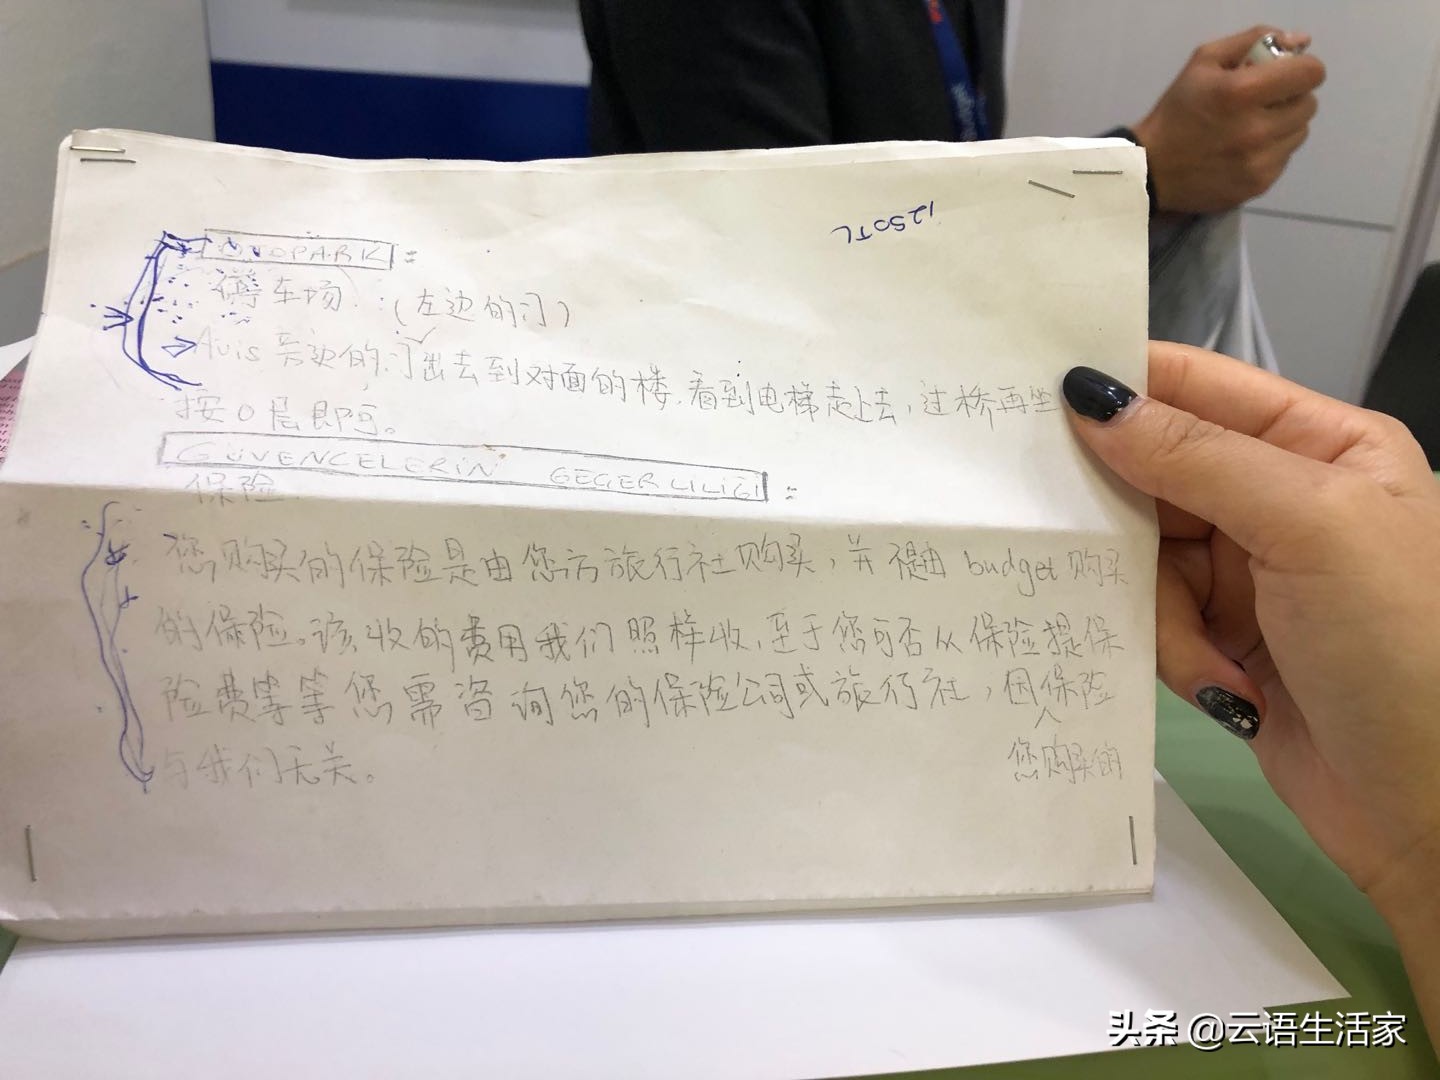 1250TL
OTOPARK :
停车场.（左边的门）
Avis 旁边的门出去到对面的楼,看到电梯走上去,过桥再坐
按0层即可。
GÜVENCELERİN GEGERLILIGI :
保险.
您购买的保险是由您方旅行社购买,并不是由 budget 购买
的保险。该收的费用我们照样收,至于您可否从保险提保
险费等等您需咨询您的保险公司或旅行社,因保险
您购买的
与我们无关。
头条 @云语生活家